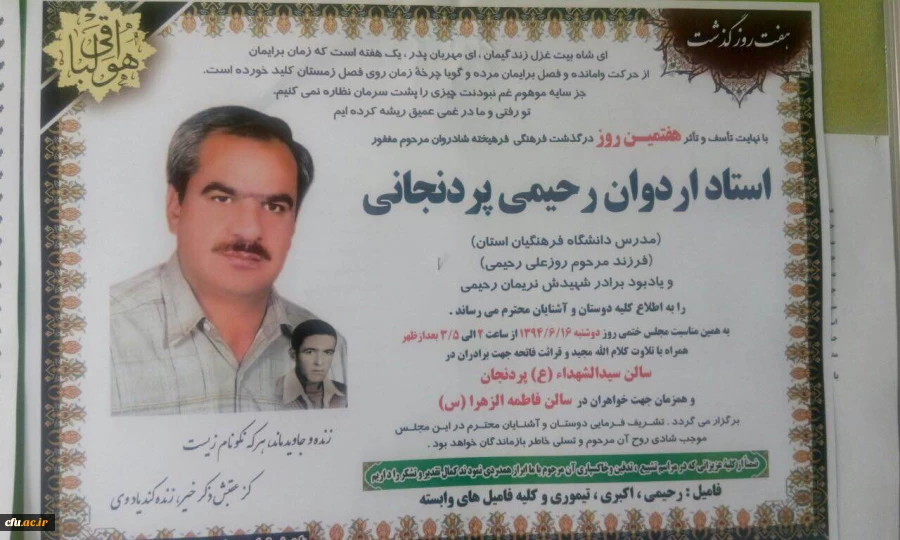 هوالباقی
هفت روز گذشت
ای شاه بیت غزل زندگیمان ، ای مهربان پدر ، یک هفته است که زمان برایمان
از حرکت وامانده و فصل برایمان مرده و گویا چرخهٔ زمان روی فصل زمستان کلید خورده است.
جز سایه موهوم غم نبودنت چیزی را پشت سرمان نظاره نمی کنیم.
تو رفتی و ما در غمی عمیق ریشه کرده ایم
با نهایت تأسف و تأثر هفتمین روز درگذشت فرهنگی فرهیخته شادروان مرحوم مغفور
استاد اردوان رحیمی پردنجانی
(مدرس دانشگاه فرهنگیان استان)
(فرزند مرحوم روزعلی رحیمی)
و یادبود برادر شهیدش نریمان رحیمی
را به اطلاع کلیه دوستان و آشنایان محترم می رساند .
به همین مناسبت مجلس ختمی روز دوشنبه ۱۳۹۴/۶/۱۶ از ساعت ۲ الی ۳/۵ بعدازظهر
همراه با تلاوت کلام الله مجید و قرائت فاتحه جهت برادران در
سالن سیدالشهداء (ع) پردنجان
و همزمان جهت خواهران در سالن فاطمه الزهرا (س)
برگزار می گردد . تشریف فرمایی دوستان و آشنایان محترم در این مجلس
موجب شادی روح آن مرحوم و تسلی خاطر بازماندگان خواهد بود .
ضمناً از کلیه عزیزانی که در مراسم تشییع ، تدفین و خاکسپاری آن مرحوم با ما ابراز همدردی نمودند کمال تقدیر و تشکر را داریم
فامیل : رحیمی ، اکبری ، تیموری و کلیه فامیل های وابسته
زنده و جاوید ماند، هر که نکو نام زیست
کز عقبش ذکر خیر، زنده کند یاد وی
cfu.ac.ir